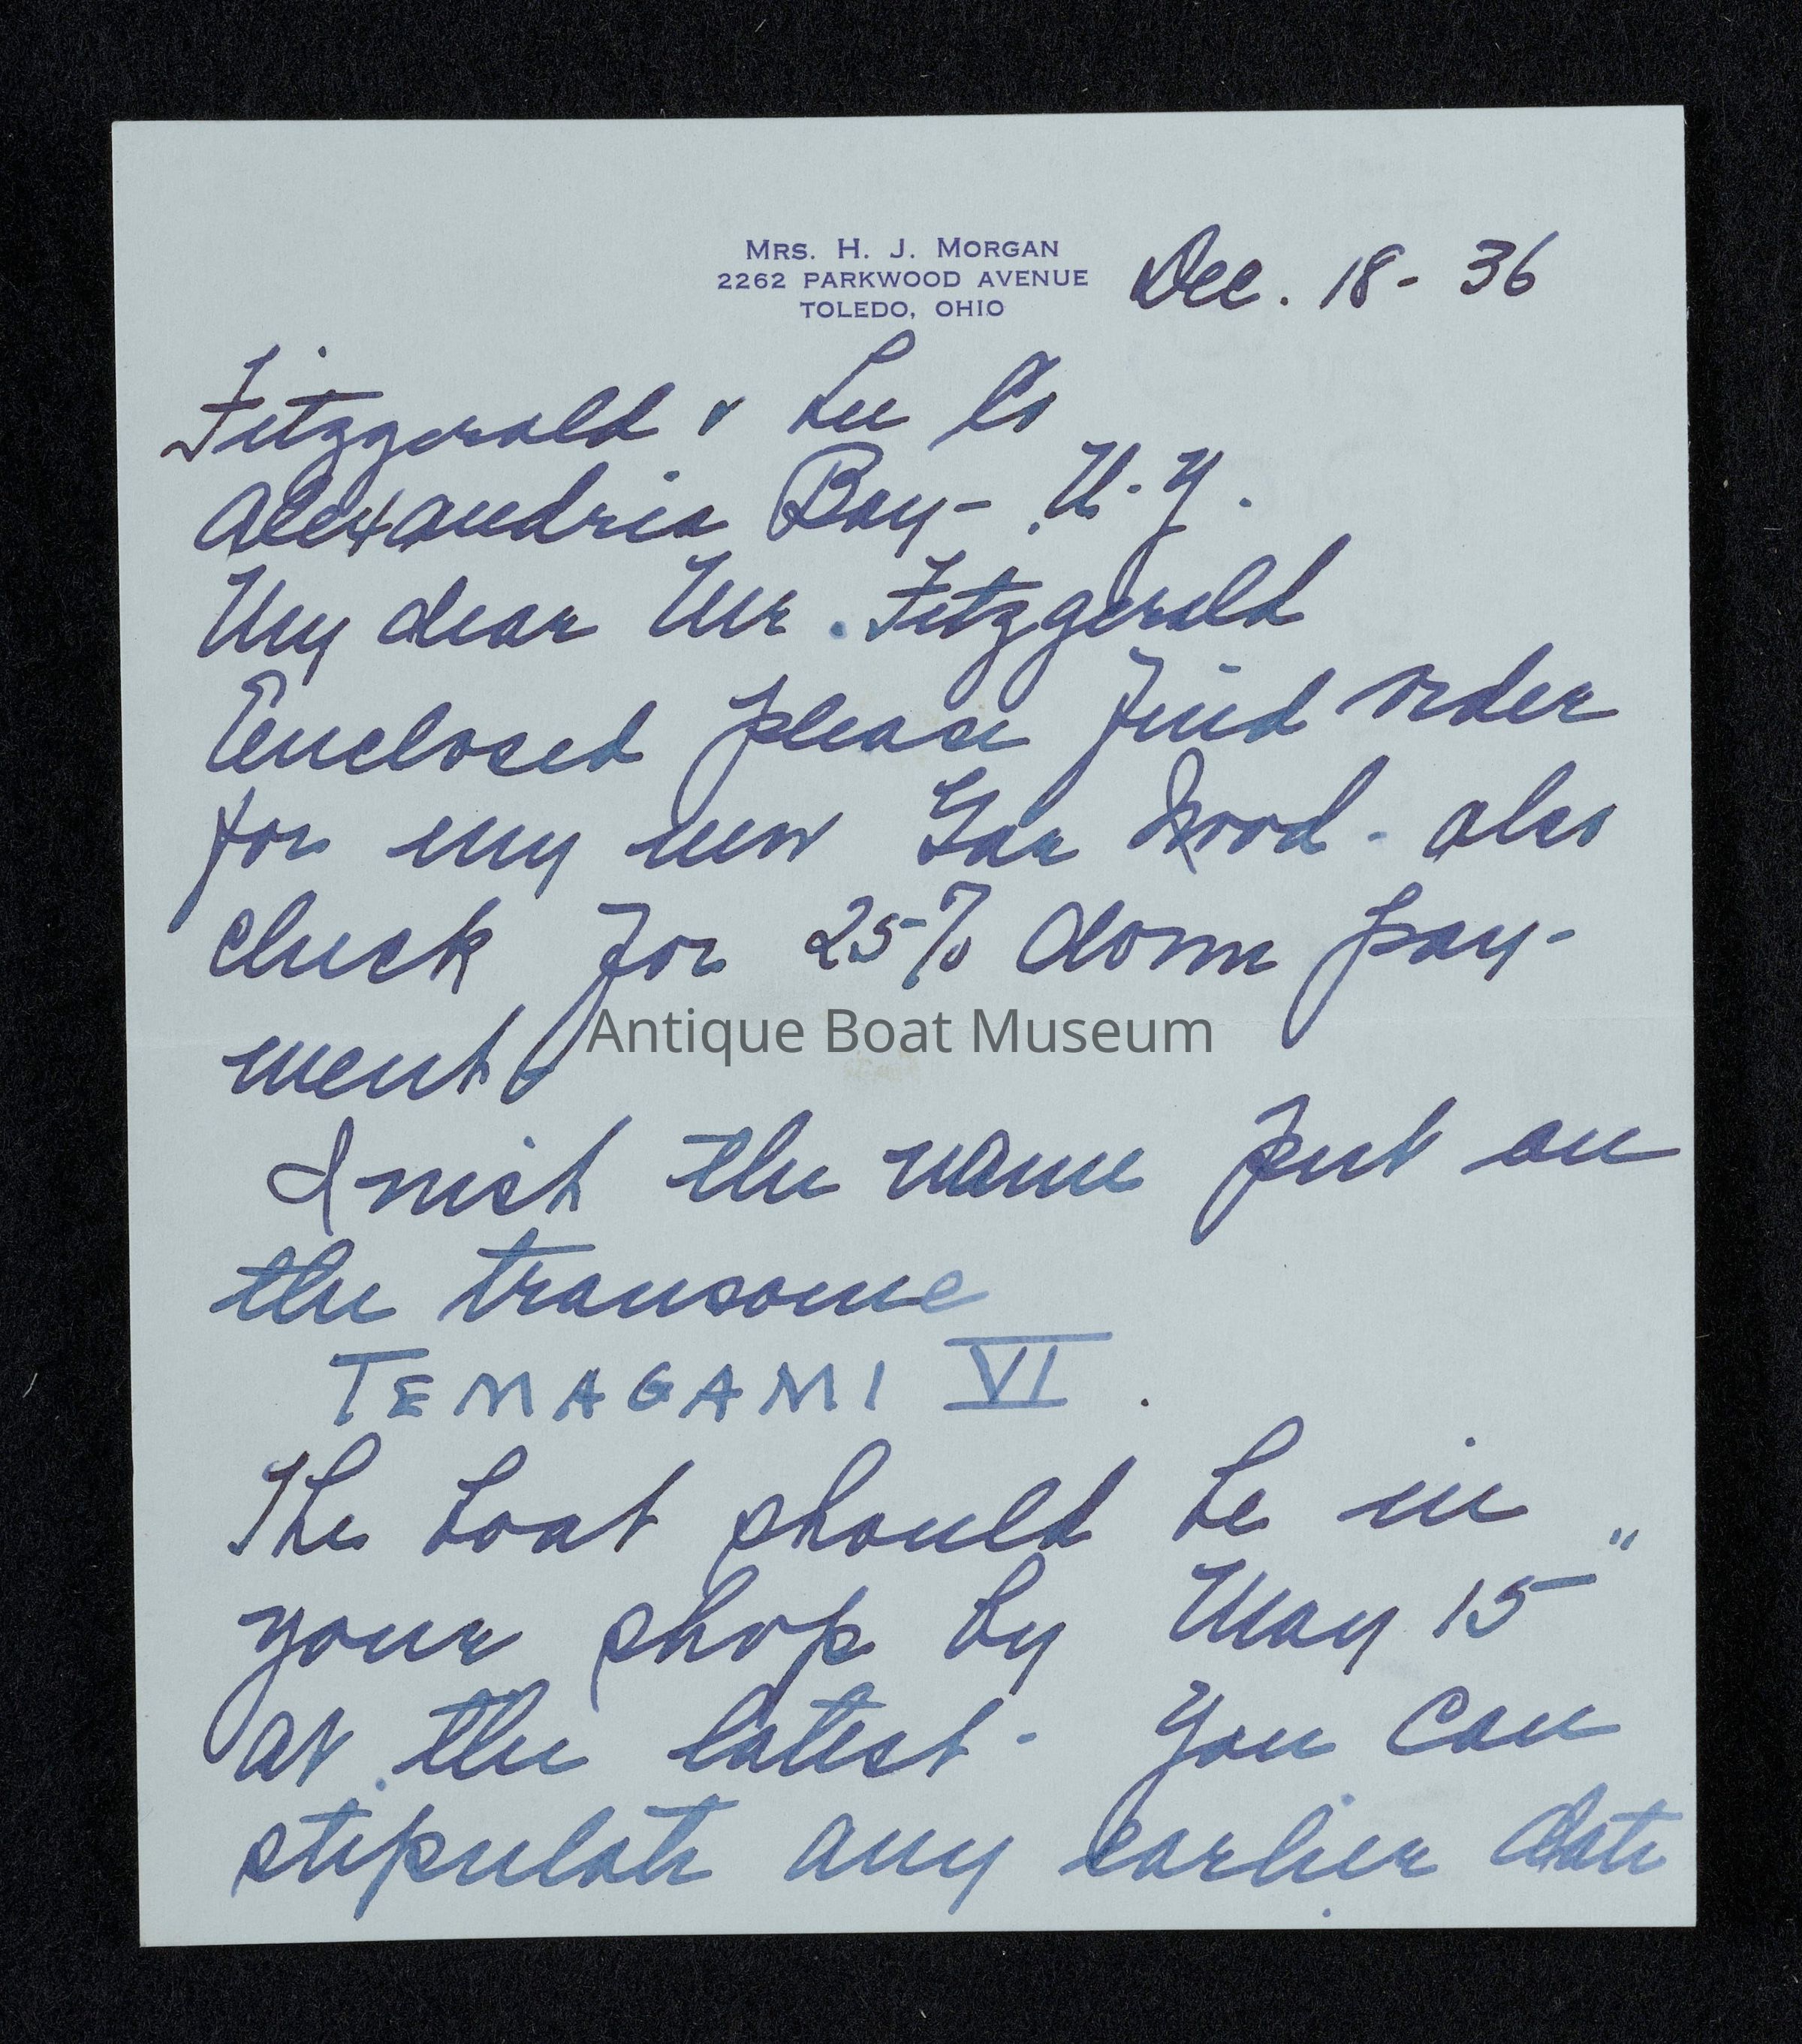 MRS. H. J. MORGAN
2262 PARKWOOD AVENUE
TOLEDO, OHIO
Dec. 18 - 36
Fitzgerald & Lee Co
Alexandria Bay - N.Y.
My dear Mr. Fitzgerald
Enclosed please find order
for my new Gar Wood - also
check for 25% down pay-
ment.
Antique Boat Museum
I wish the name put on
the transome
TEMAGAMI VI.
The boat should be in
your shop by May 15"
at the latest - You can
stipulate any earlier date